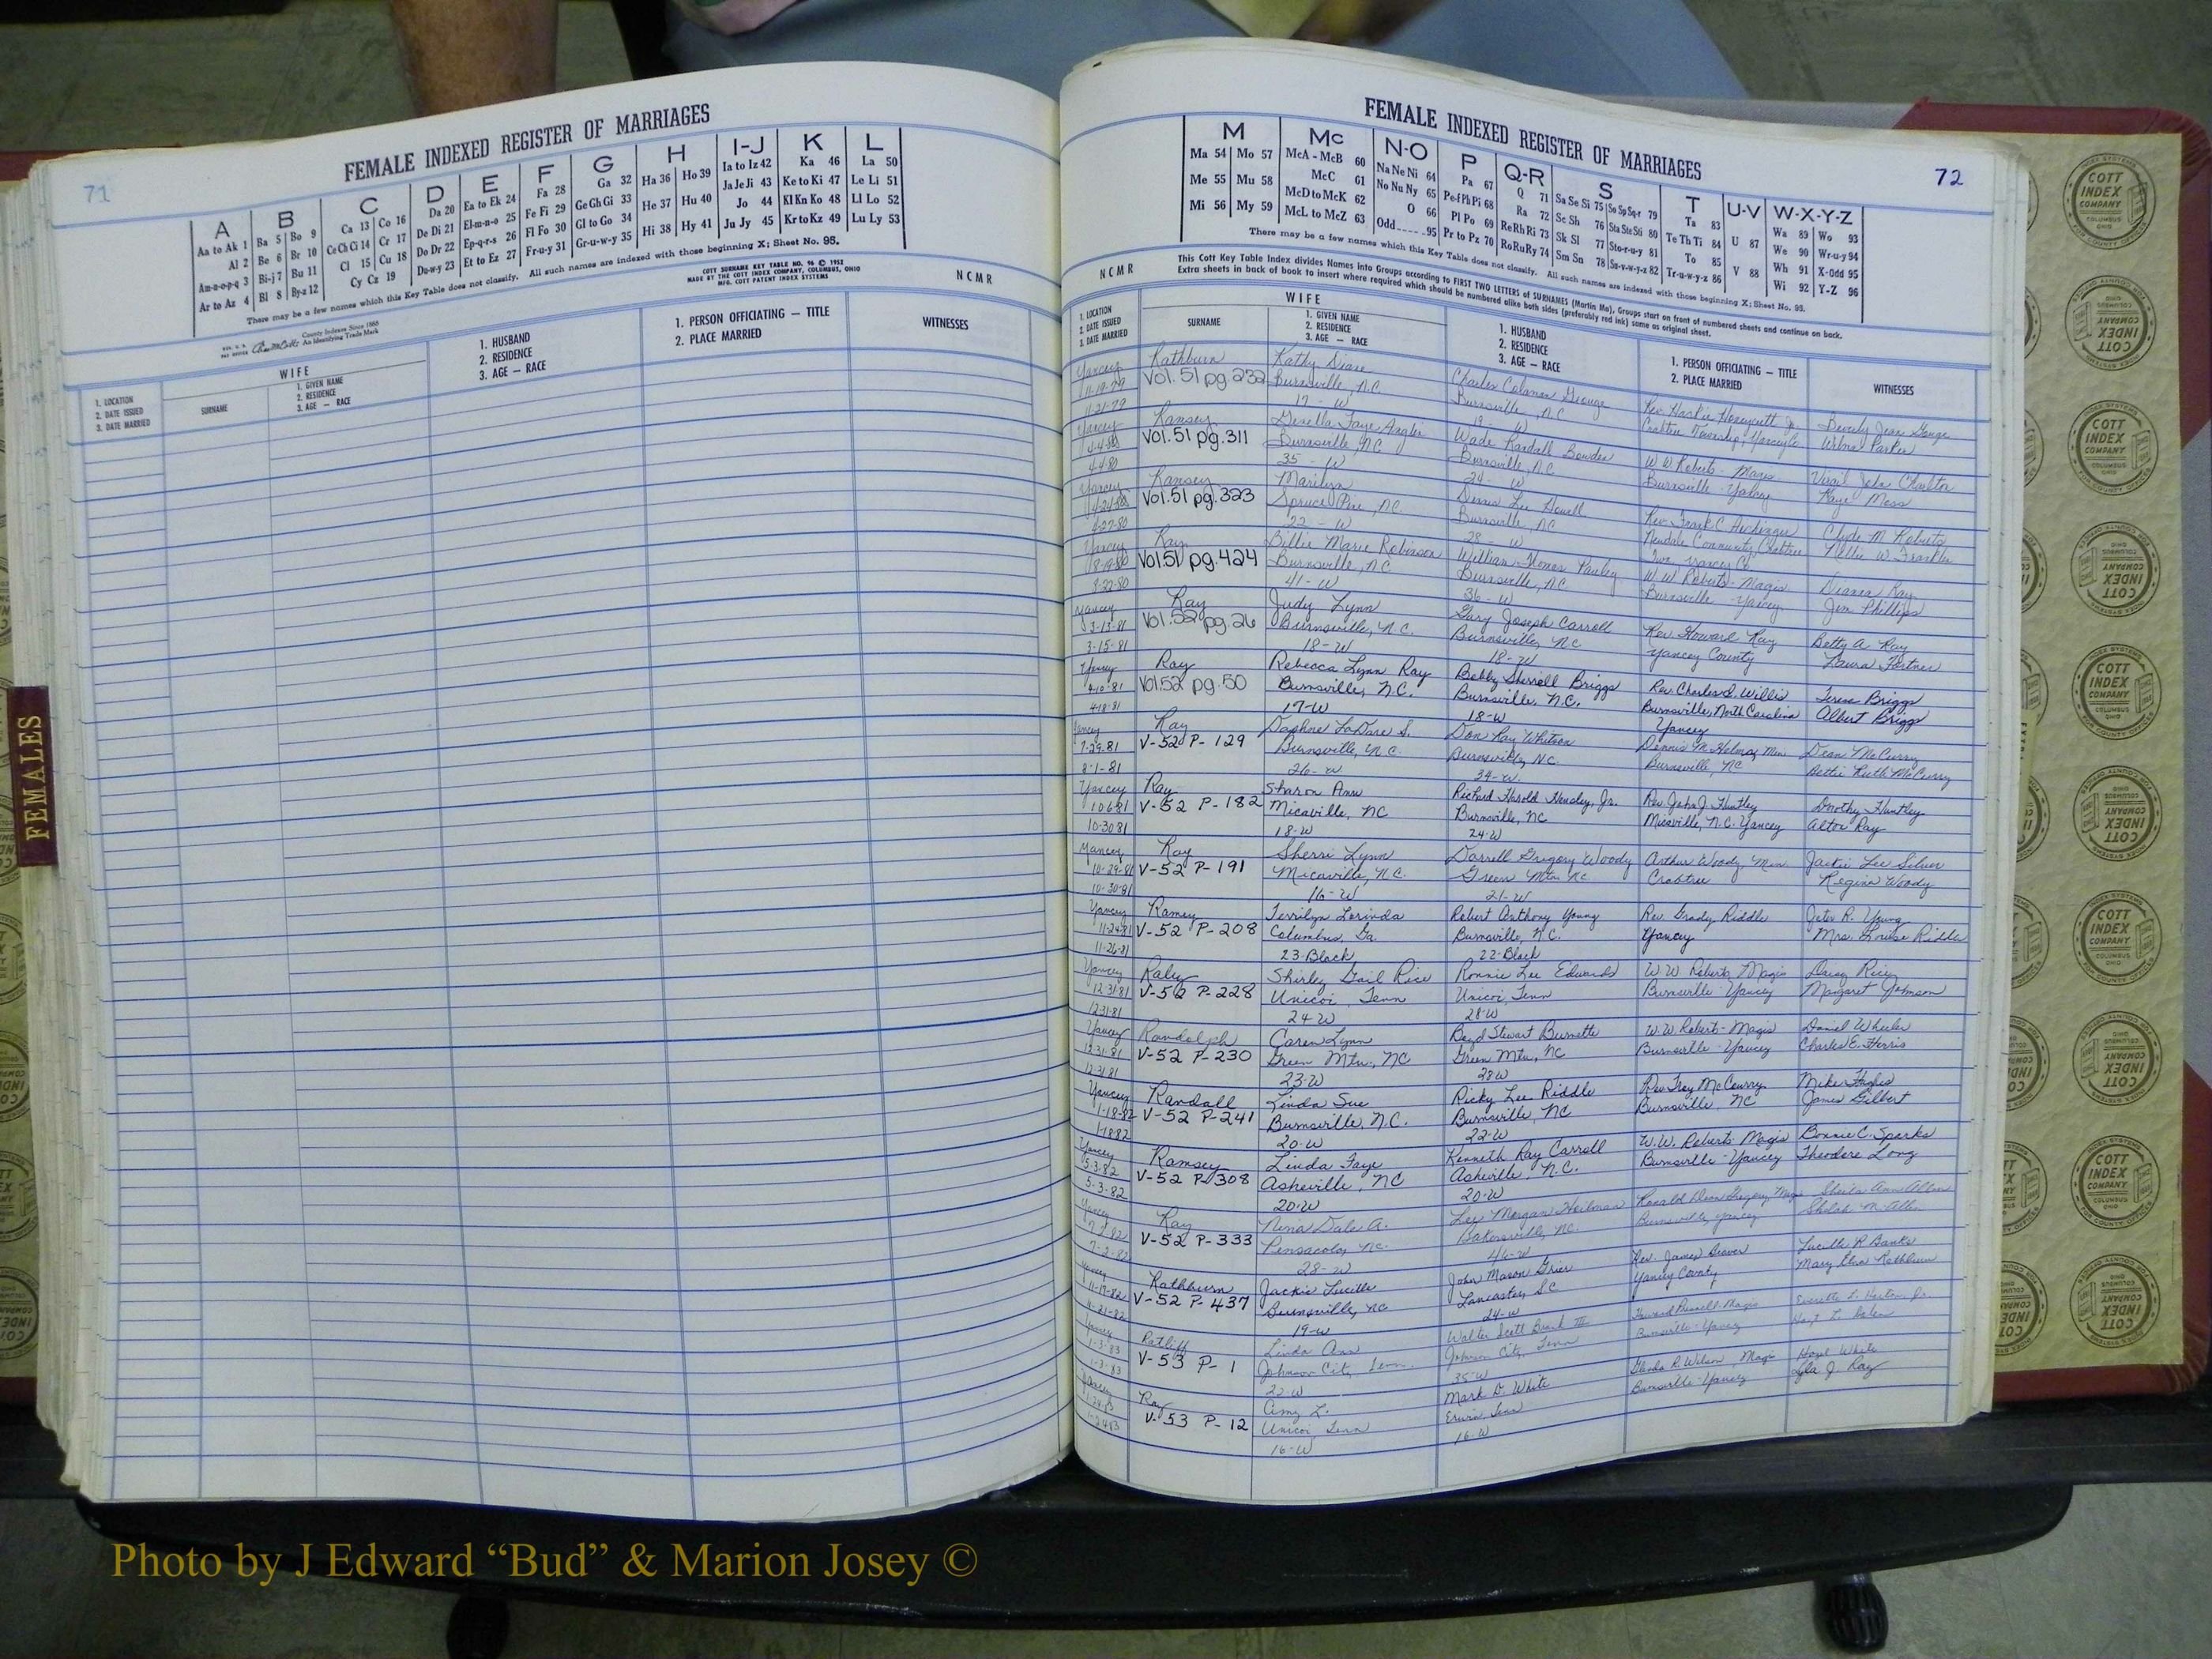 71
FEMALE INDEXED REGISTER OF MARRIAGES
A
Aa to Ak 1
Al 2
Am-n-o-p-q 3
Ar to Az 4
B
Ba 5 Bo 9
Be 6 Br 10
Bi-j 7 Bu 11
Bl 8 By-z 12
C
Ca 13 Co 16
Ce Ch Ci 14 Cr 17
Cl 15 Cu 18
Cy Cz 19
D
Da 20
De Di 21
Do Dr 22
Du-w-y 23
E
Ea to Ek 24
El-m-n-o 25
Ep-q-r-s 26
Et to Ez 27
F
Fa 28
Fe Fi 29
Fl Fo 30
Fr-u-y 31
G
Ga 32
Ge Gh Gi 33
Gl to Go 34
Gr-u-w-y 35
H
Ha 36 Ho 39
He 37 Hu 40
Hi 38 Hy 41
I-J
Ia to Iz 42
Ja Je Ji 43
Jo 44
Ju Jy 45
K
Ka 46
Ke to Ki 47
Kl Kn Ko 48
Kr to Kz 49
L
La 50
Le Li 51
Ll Lo 52
Lu Ly 53
There may be a few names which this Key Table does not classify. All such names are indexed with those beginning X; Sheet No. 95.
County Indexes Since 1888
An Identifying Trade Mark
COTT SURNAME KEY TABLE NO. 96 © 1952
MADE BY THE COTT INDEX COMPANY, COLUMBUS, OHIO
MFG. COTT PATENT INDEX SYSTEMS
NCMR
1. LOCATION
2. DATE ISSUED
3. DATE MARRIED
WIFE
SURNAME
1. GIVEN NAME
2. RESIDENCE
3. AGE — RACE
1. HUSBAND
2. RESIDENCE
3. AGE — RACE
1. PERSON OFFICIATING — TITLE
2. PLACE MARRIED
WITNESSES
FEMALES
FEMALE INDEXED REGISTER OF MARRIAGES
72
M
Ma 54 Mo 57
Me 55 Mu 58
Mi 56 My 59
Mc
McA - McB 60
McC 61
McD to McK 62
McL to McZ 63
N-O
Na Ne Ni 64
No Nu Ny 65
O 66
Odd 95
P
Pa 67
Pe-f Ph Pi 68
Pl Po 69
Pr to Pz 70
Q-R
Q 71
Ra 72
Re Rh Ri 73
Ro Ru Ry 74
S
Sa Se Si 75 So Sp Sq-r 79
Sc Sh 76 Sta Ste Sti 80
Sk Sl 77 Sto-r-u-y 81
Sm Sn 78 Su-v-w-y-z 82
T
Ta 83
Te Th Ti 84
To 85
Tr-u-w-y-z 86
U-V
U 87
V 88
W-X-Y-Z
Wa 89 Wo 93
We 90 Wr-u-y 94
Wh 91 X-Odd 95
Wi 92 Y-Z 96
There may be a few names which this Key Table does not classify. All such names are indexed with those beginning X; Sheet No. 95.
NCMR
This Cott Key Table Index divides Names into Groups according to FIRST TWO LETTERS of SURNAMES (Martin Ma), Groups start on front of numbered sheets and continue on back.
Extra sheets in back of book to insert where required which should be numbered alike both sides (preferably red ink) same as original sheet.
1. LOCATION
2. DATE ISSUED
3. DATE MARRIED
WIFE
SURNAME
1. GIVEN NAME
2. RESIDENCE
3. AGE — RACE
1. HUSBAND
2. RESIDENCE
3. AGE — RACE
1. PERSON OFFICIATING — TITLE
2. PLACE MARRIED
WITNESSES
Yancey Rathburn Kathy Diane Charles Coleman George Rev. Haskie Honeycutt Jr. Beverly Jean
11-19-79 Vol. 51 pg. 232 Burnsville, N.C. Burnsville, N.C. Crabtree Township, Wilma Parker
11-21-79 17 - W 19 - W
Yancey Ramsey Faye Angler Wade Randall Bowder W W Roberts - Magis Virgil Charlton
4-4-80 Vol. 51 pg. 311 Burnsville, NC Burnsville, N.C. Burnsville - Yancey Kaye Moss
4-4-80 35 - W 24 - W
Yancey Ramsey Marilyn Dennis Lee Howell Rev. Frank C. Clyde M. Roberts
4-24-80 Vol. 51 pg. 323 Spruce Pine, N.C. Burnsville, NC Newdale Community, Crabtree Nellie W. Franklin
4-27-80 22 - W 28 - W Twp. Yancey Co.
Yancey Ray Billie Marie Robinson William Thomas Penley W W Roberts - Magis Dianna Ray
8-19-80 Vol. 51 pg. 424 Burnsville, N.C. Burnsville, N.C. Burnsville - Yancey Jim Phillips
8-22-80 41 - W 36 - W
Yancey Ray Judy Lynn Gary Joseph Carroll Rev. Howard Ray Betty A. Ray
3-13-81 Vol. 52 pg. 26 Burnsville, N.C. Burnsville, NC Yancey County Laura Fortner
3-15-81 18 - W 18 - W
Yancey Ray Rebecca Lynn Ray Bobby Sherrill Briggs Rev. Charles D. Willis Teresa Briggs
4-10-81 Vol. 52 pg. 50 Burnsville, N.C. Burnsville, N.C. Burnsville, North Carolina Albert Briggs
4-18-81 17-W 18-W Yancey
Yancey Ray Daphne LaDare S. Don Ray Whitson Dennis M. Min Dean McCurry
7-29-81 V-52 P-129 Burnsville, N.C. Burnsville, N.C. Burnsville, NC Bettie Ruth McCurry
8-1-81 26-W 34-W
Yancey Ray Sharon Ann Richard Harold Hensley, Jr. Rev. John J. Huntley Dorothy Huntley
10-6-81 V-52 P-182 Micaville, NC Burnsville, NC Micaville, N.C. Yancey Alton Ray
10-30-81 18-W 24-W
Yancey Ray Sherri Lynn Darrell Gregory Woody Arthur Woody, Min Jackie Lee Silver
10-29-81 V-52 P-191 Micaville, N.C. Green Mtn NC Crabtree Regina Woody
10-30-81 16-W 21-W
Yancey Ramey Terrilyn Lorinda Robert Anthony Young Rev. Grady Riddle Jeter R. Young
11-24-81 V-52 P-208 Columbus, Ga. Burnsville, N.C. Yancey Mrs. Louise Riddle
11-26-81 23-Black 22-Black
Yancey Raley Shirley Gail Rice Ronnie Lee Edwards W.W. Roberts Magis Daisy Rice
12-31-81 V-52 P-228 Unicoi, Tenn Unicoi, Tenn Burnsville Yancey Margaret Johnson
12-31-81 24-W 28-W
Yancey Randolph Caren Lynn Boyd Stewart Burnette W.W. Roberts - Magis Daniel Wheeler
12-31-81 V-52 P-230 Green Mtn, NC Green Mtn, NC Burnsville - Yancey Charles E. Harris
12-31-81 23-W 28W
Yancey Randall Linda Sue Ricky Lee Riddle Rev. Troy McCurry Mike Hughes
1-18-82 V-52 P-241 Burnsville, N.C. Burnsville, NC Burnsville, NC James Gilbert
1-18-82 20-W 22-W
Yancey Ramsey Linda Faye Kenneth Ray Carroll W.W. Roberts Magis Bonnie C. Sparks
5-3-82 V-52 P-308 Asheville, NC Asheville, N.C. Burnsville - Yancey Theodore Long
5-3-82 20-W 20-W
Yancey Ray Nina Dale A. Lee Morgan Heilman Ronald Dean Gregory, Magis Sheila Ann Allen
7-2-82 V-52 P-333 Pensacola, NC. Bakersville, NC. Burnsville, Yancey
7-2-82 28-W 46-W
Yancey Rathburn Jackie Lucille John Mason Grier Rev. James Lucille R Banks
11-17-82 V-52 P-437 Burnsville, NC Lancaster, SC Yancey County Mary Rathburn
11-21-82 19-W 24-W
Yancey Ratliff Linda Ann Walter Scott III Howard Russell Magis
1-3-83 V-53 P-1 Johnson City, Tenn. Johnson City, Tenn Burnsville - Yancey
1-3-83 22-W 35-W
Yancey Ray Amy L. Mark D. White R. Wilson, Magis Hazel White
1-24-83 V-53 P-12 Unicoi Tenn Erwin, Tenn Burnsville - Yancey Lyla J. Ray
1-24-83 16-W 16-W
COTT
INDEX
COMPANY
COLUMBUS
OHIO
Photo by J Edward “Bud” & Marion Josey ©